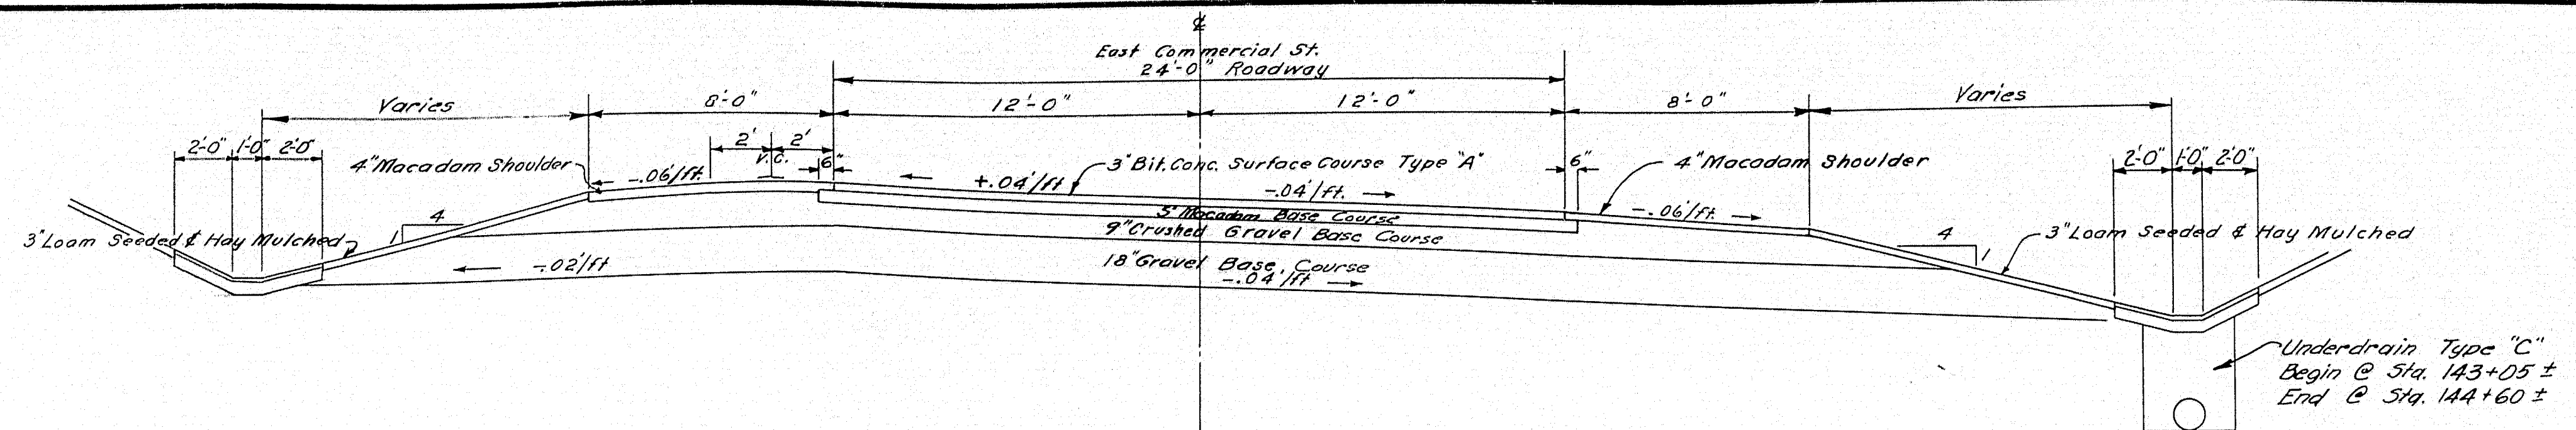 ℄
East Commercial St.
24'-0" Roadway
Varies
8'-0"
12'-0"
12'-0"
8'-0"
Varies
2'-0" 1'-0" 2'-0"
2' 2'
V.C.
6"
6"
2'-0" 1'-0" 2'-0"
4" Macadam Shoulder
-.06'/ft.
+.04'/ft
3" Bit. Conc. Surface Course Type "A"
-.04'/ft.
4" Macadam Shoulder
-.06'/ft.
5" Macadam Base Course
9" Crushed Gravel Base Course
18" Gravel Base Course
-.04'/ft
-.02'/ft
4
1
3" Loam Seeded & Hay Mulched
4
1
3" Loam Seeded & Hay Mulched
Underdrain Type "C"
Begin @ Sta. 143+05 ±
End @ Sta. 144+60 ±